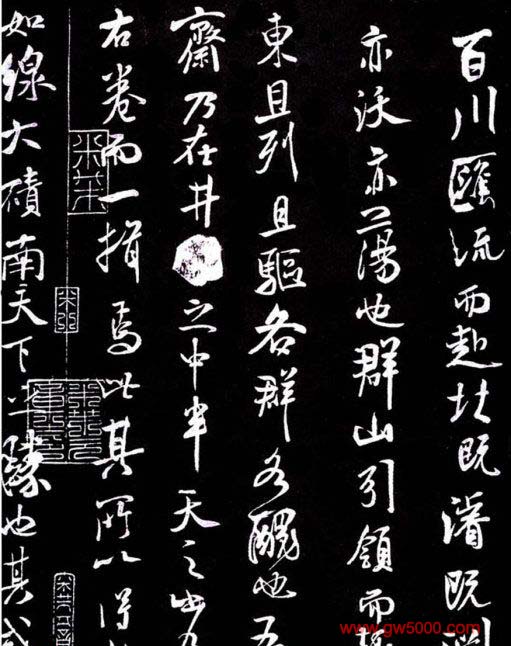 百川匯流而赴壮既濬既
亦沃亦蕩也群山引領而
東且列且驅各群各醜也五
齋乃在井之中半天之
右卷而一揖焉此其所以得
如線大磧南天下半陲也其
www.gw5000.com